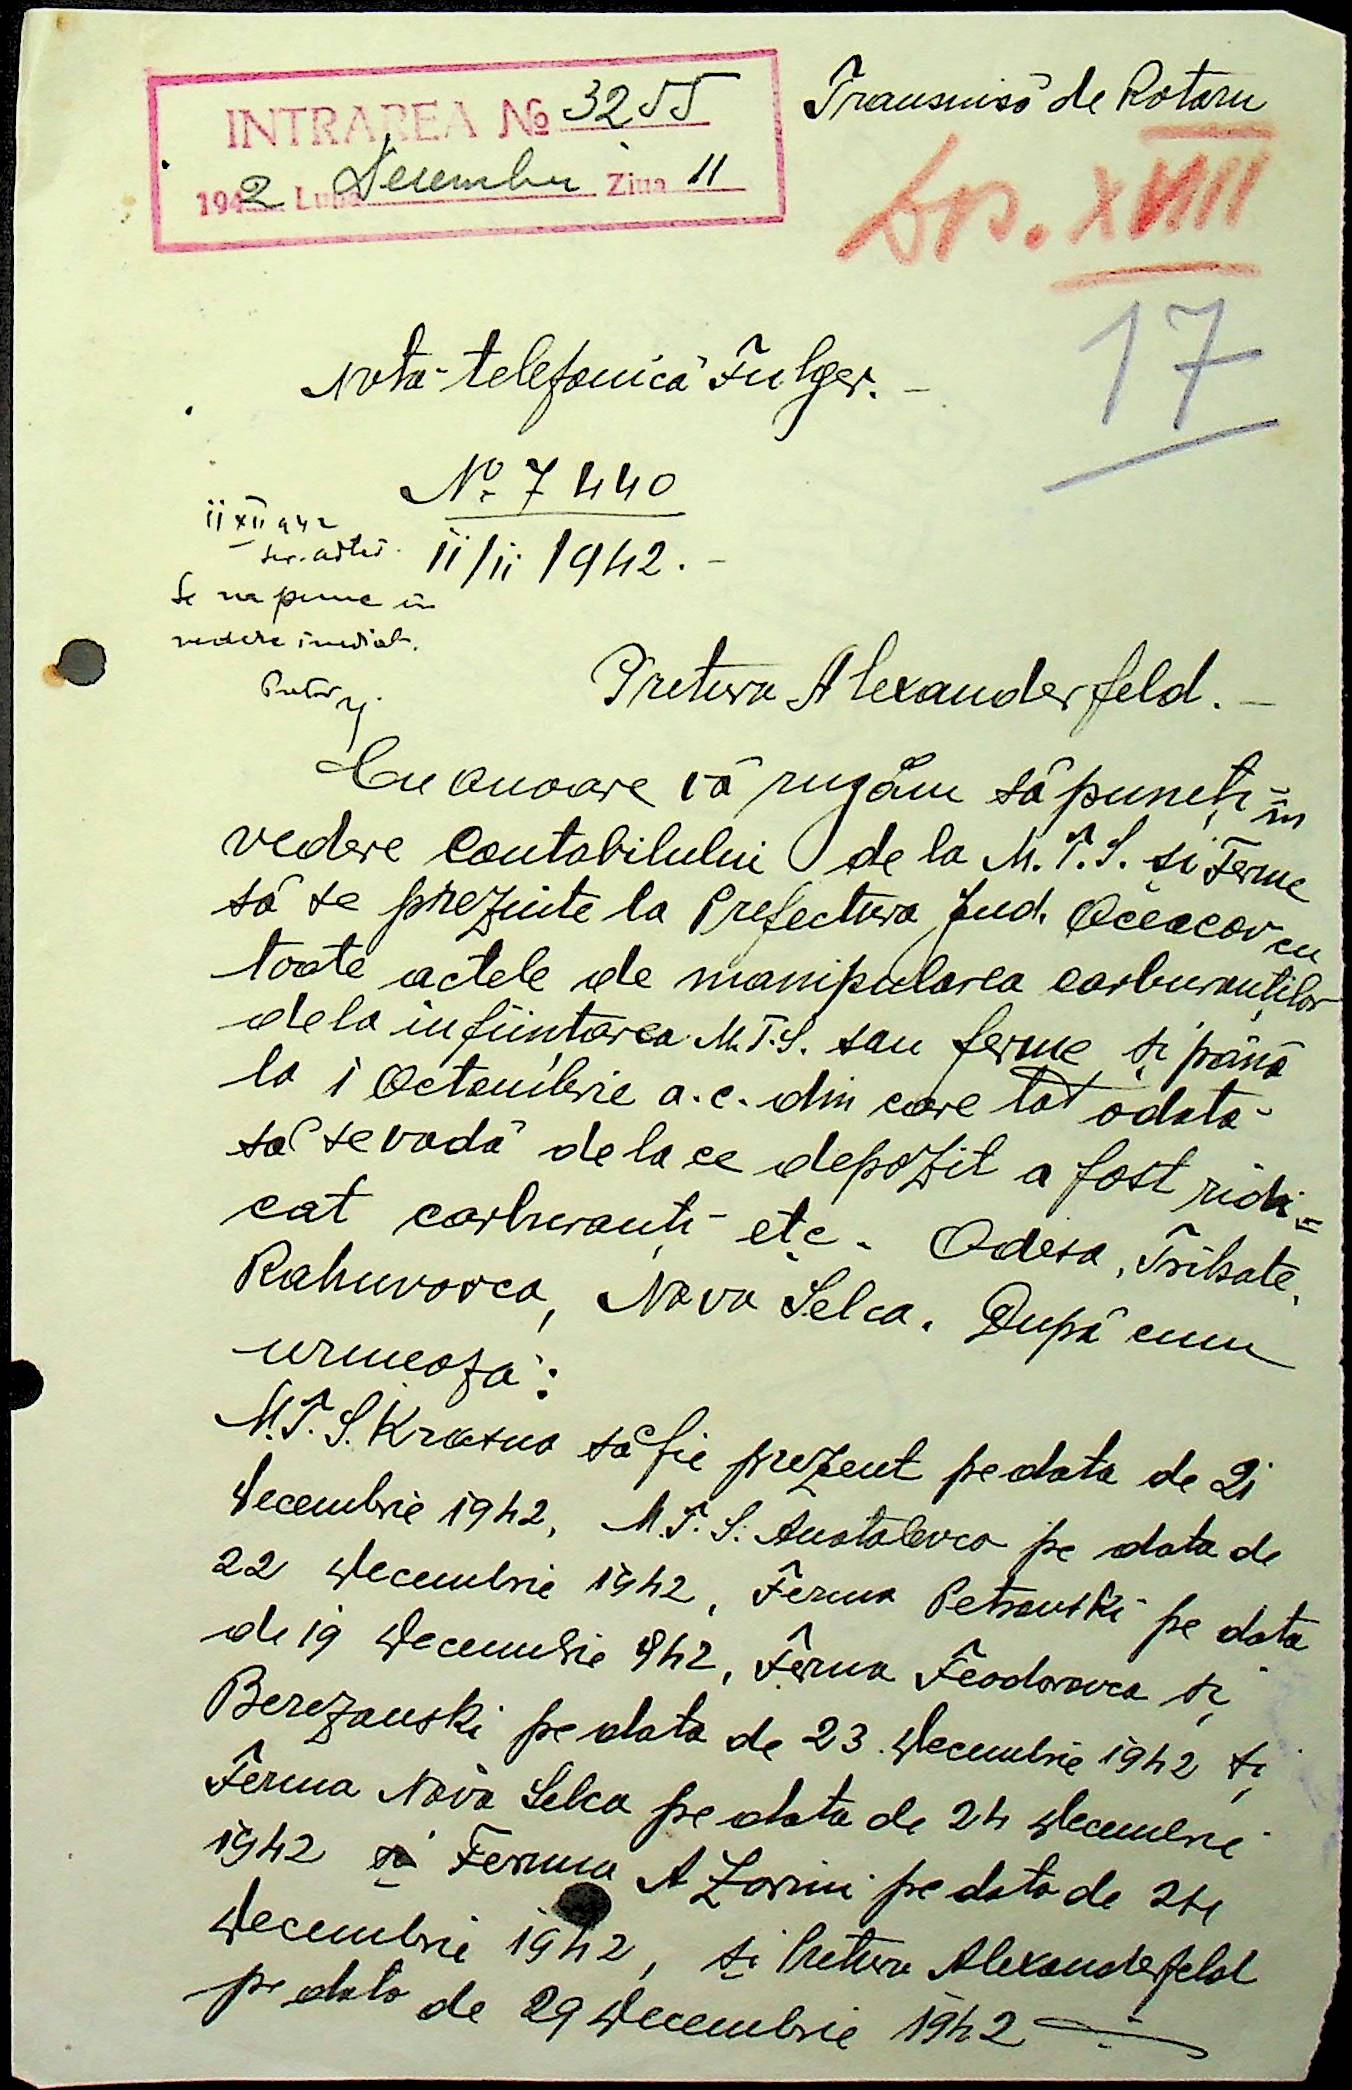 INTRAREA № 3255
1942 Luna Decembrie Ziua 11
Transmisă de Rotaru
XVIII
17
Nota telefonică Fulger. -
Nº 7440
11/11 1942. -
11 XII 942
Se va pune in
vedere imediat.
Pretor
Pretura Alexanderfeld. -
Cu onoare vă rugăm să puneți in
vedere Contabilului de la M.T.S. si Ferme
să se prezinte la Prefectura Jud. Oceacov cu
toate actele de manipularea carburanților
dela inființarea M.T.S. sau ferme și până
la 1 Octombrie a.c. din care tot odată
să se vadă de la ce depozit a fost ridi=
cat carburanți etc. Odesa, Trihate,
Rahuvovca, Nova Selca. După cum
urmează:
M.T.S. Krasna să fie prezent pe data de 21
Decembrie 1942, M.T.S. Anatolevca pe data de
22 Decembrie 1942, Ferma Petrovski pe data
de 19 Decembrie 942, Ferma Feodorovca și
Berezanski pe data de 23 Decembrie 1942 și
Ferma Nova Selca pe data de 24 Decembrie
1942 si Ferma A Zorini pe data de 24
Decembrie 1942, și Pretura Alexanderfeld
pe data de 29 Decembrie 1942